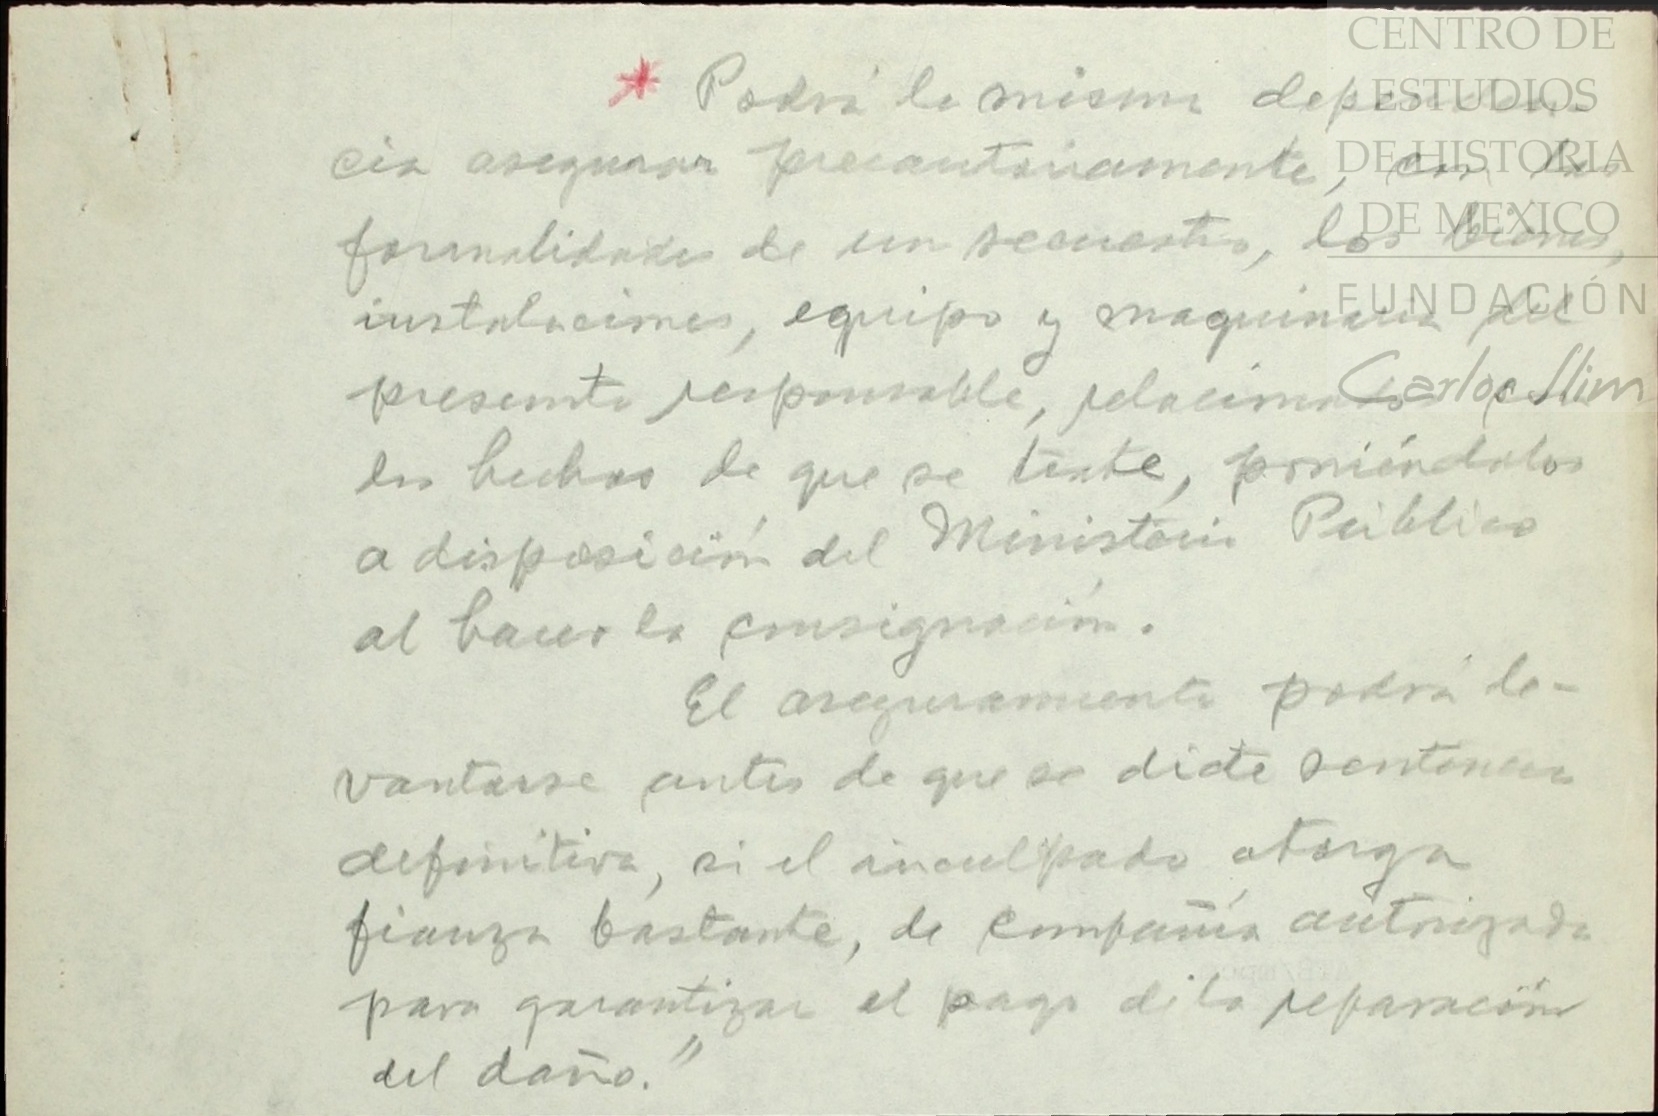 CENTRO DE
ESTUDIOS
DE HISTORIA
DE MÉXICO
FUNDACIÓN
Carlos Slim
* Podrá la misma dependen-
cia asegurar precautoriamente, con las
formalidades de un secuestro, los bienes,
instalaciones, equipo y maquinaria del
presunto responsable, relacionados con
los hechos de que se trate, poniéndolos
a disposición del Ministerio Público
al hacer la consignación.
El aseguramiento podrá le-
vantarse antes de que se dicte sentencia
definitiva, si el inculpado otorga
fianza bastante, de compañía autorizada
para garantizar el pago de la reparación
del daño."